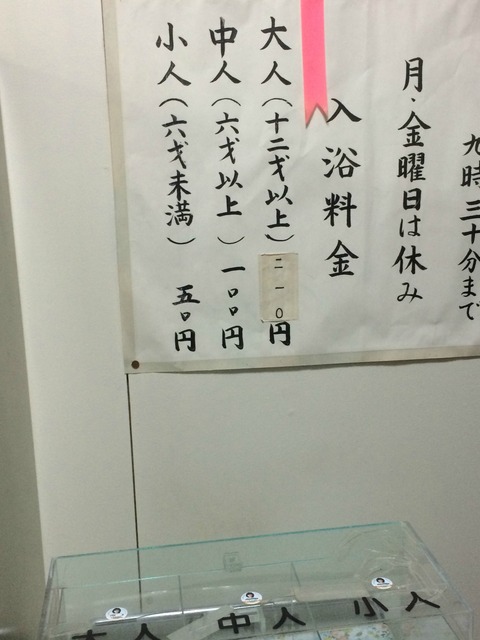 九時三十分まで
月・金曜日は休み
入浴料金
大人（十二才以上）二一〇円
中人（六才以上）一〇〇円
小人（六才未満）五〇円
大人
中人
小人